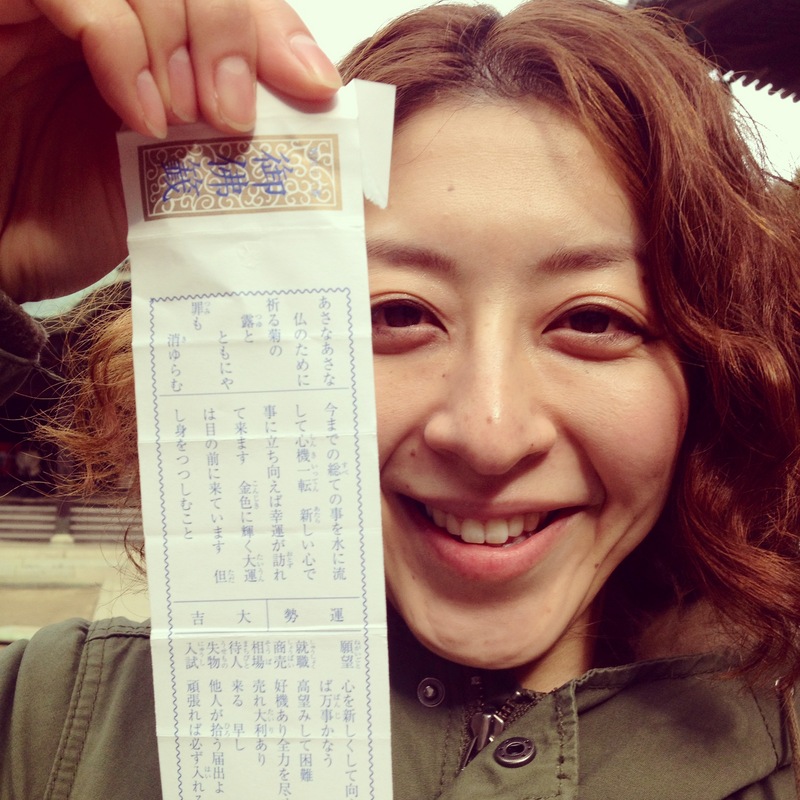 御佛籤
あさなあさな
仏のために
祈る菊の
露と
ともにや
罪も
消ゆらむ
今までの総ての事を水に流
して心機一転 新しい心で
事に立ち向えば幸運が訪れ
て来ます 金色に輝く大運
は目の前に来ています 但
し身をつつしむこと
運勢 大吉
願望 心を新しくして向
ば万事かなう
就職 高望みして困難
商売 好機あり全力を尽
相場 売れ大利あり
待人 来る 早し
失物 他人が拾う届出よ
入試 頑張れば必ず入れる